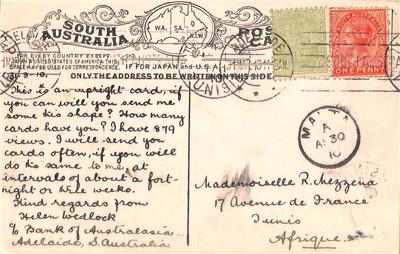 SOUTH AUSTRALIA
POST CARD
W.A.
S.A.
N.S.W.
FOR EVERY COUNTRY EXCEPT JAPAN & UNITED STATES OF AMERICA THIS SPACE MAY BE USED FOR CORRESPONDENCE.
IF FOR JAPAN and U.S.A.
ONLY THE ADDRESS TO BE WRITTEN ON THIS SIDE
ONE PENNY
31.3-10.
This is an upright card, if
you can will you send me
some this shape? How many
cards have you? I have 879
views. I will send you
cards often, if you will
do the same to me, at
intervals of about a fort-
night or three weeks.
Kind regards from
Helen Wedlock
c/o Bank of Australasia
Adelaide, S. Australia
MALTA
A
AP 30
10
Mademoiselle R. Mezzena
17 Avenue de France
Tunis
Afrique.